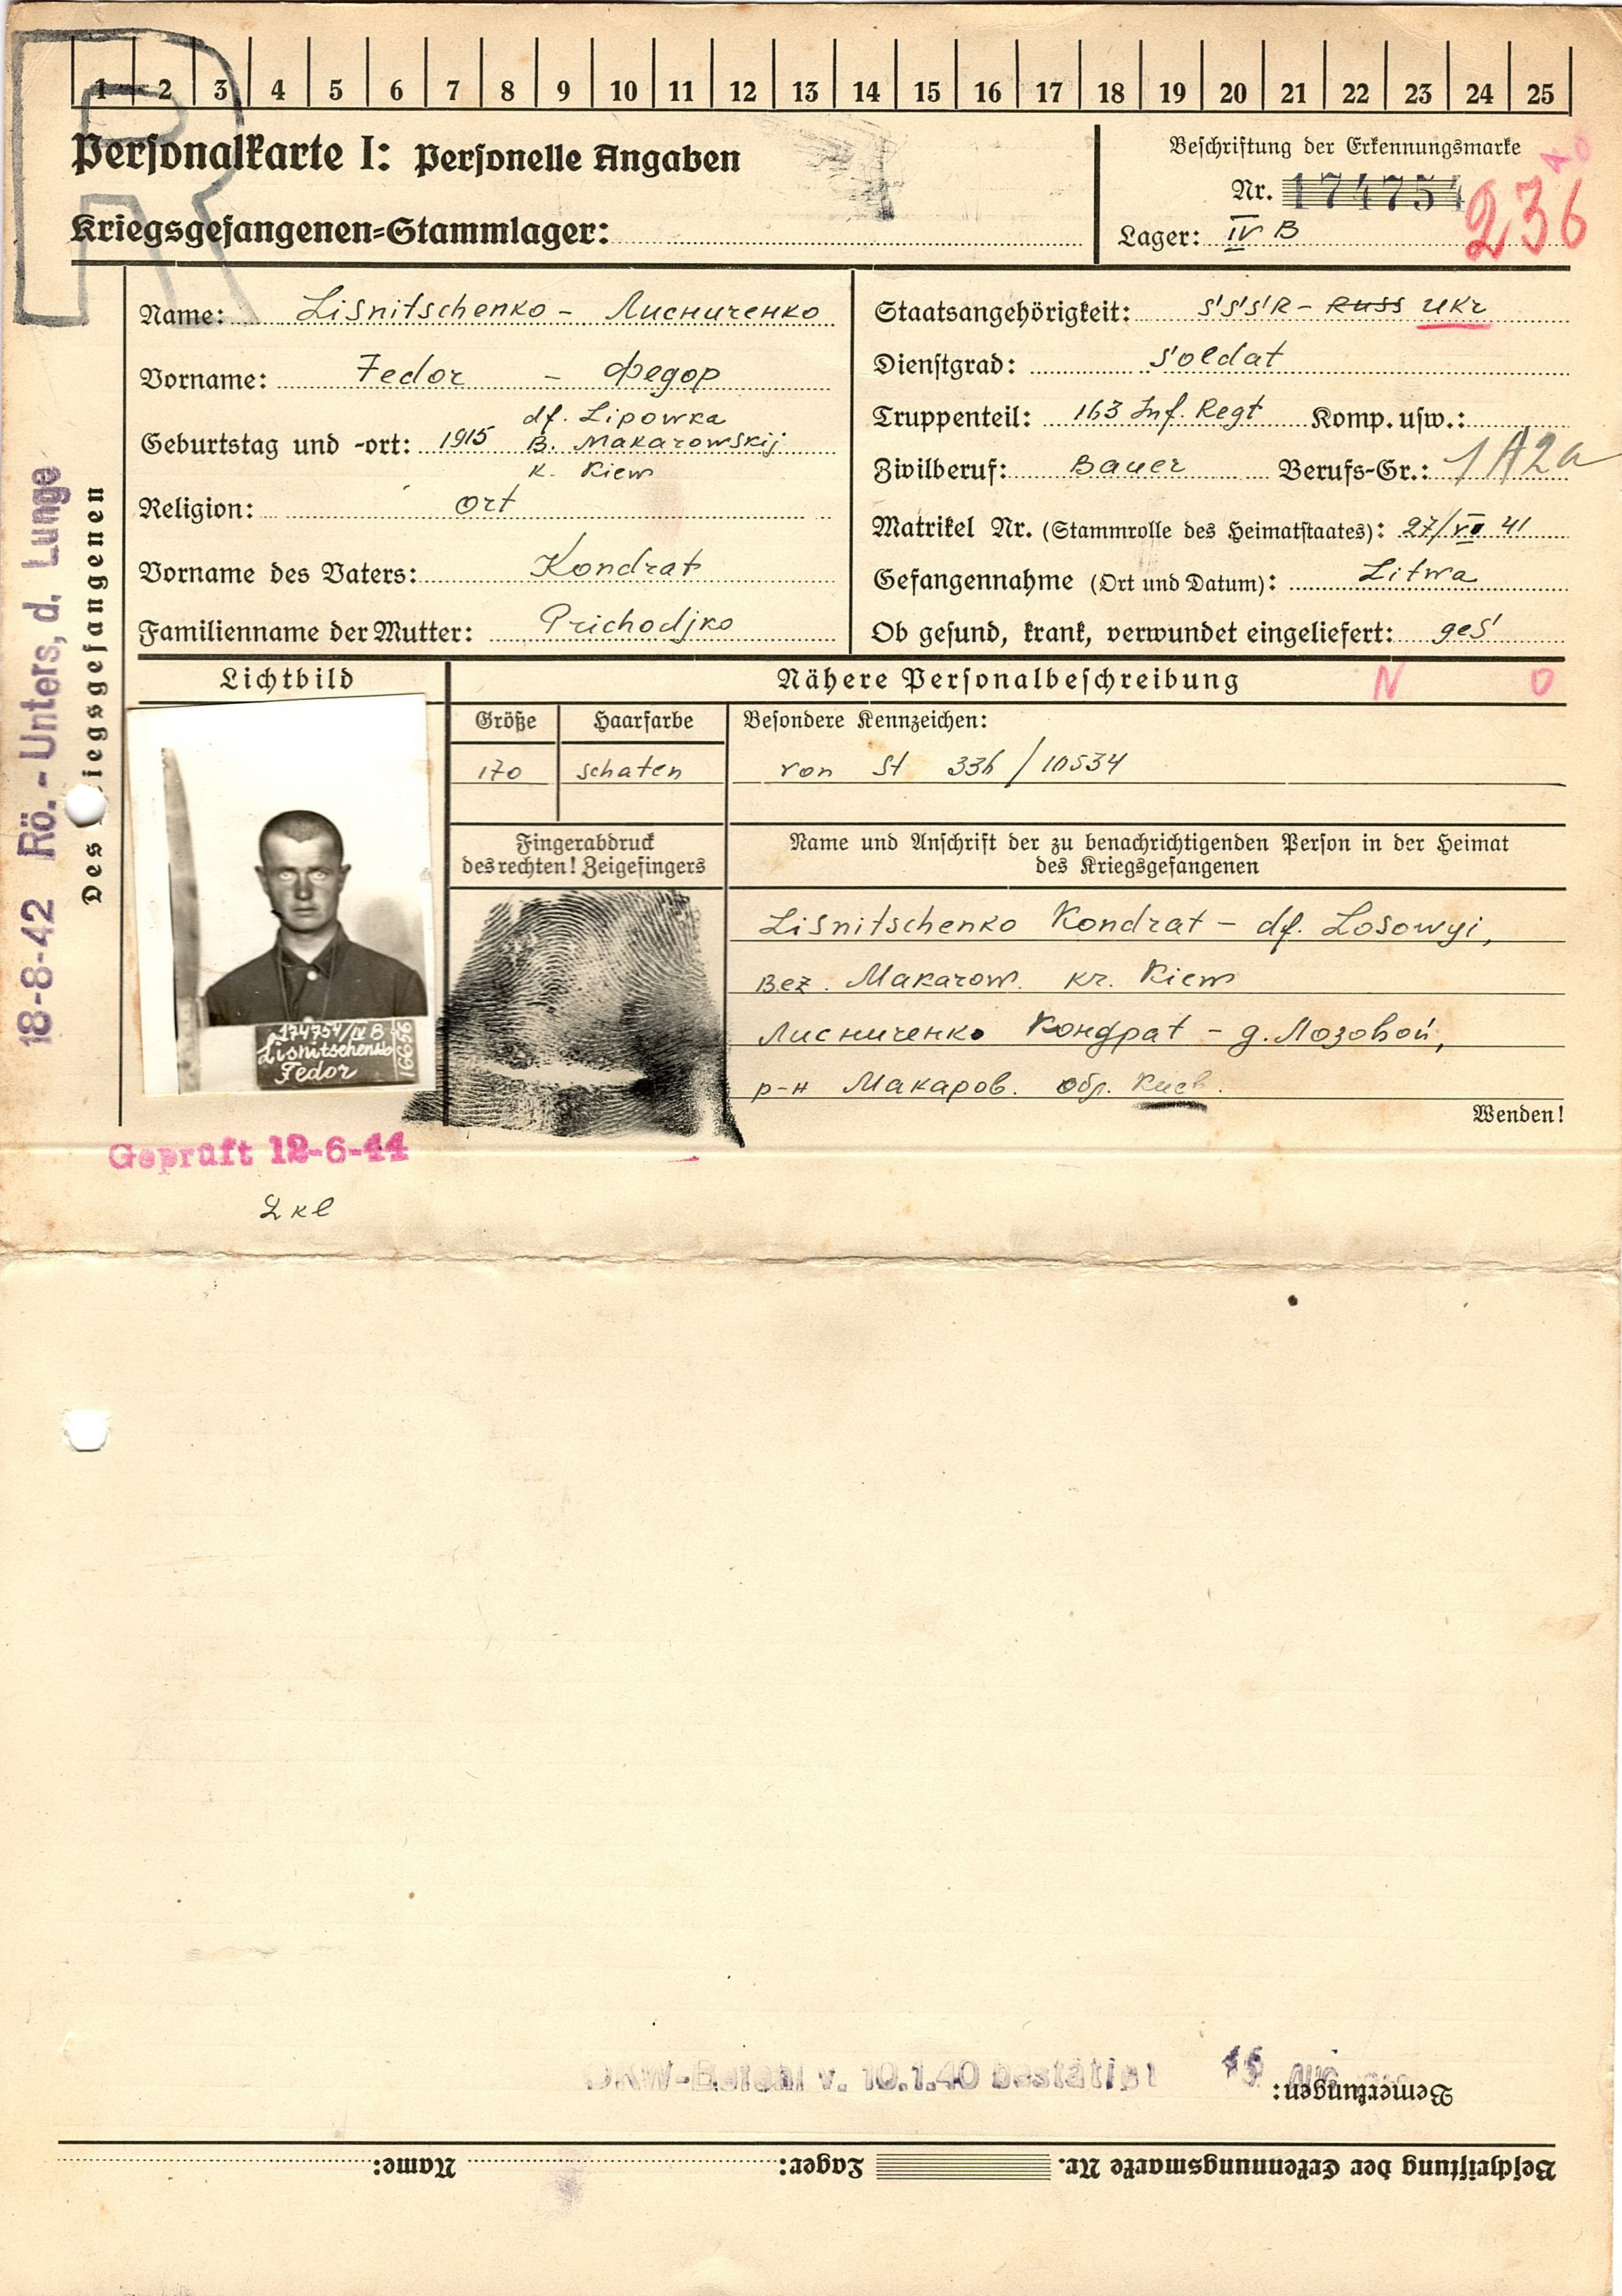 1 2 3 4 5 6 7 8 9 10 11 12 13 14 15 16 17 18 19 20 21 22 23 24 25
R
Personalkarte I: Personelle Angaben
Kriegsgefangenen=Stammlager:
Beschriftung der Erkennungsmarke
Nr. 174754
Lager: IV B
236
Name: Lisnitschenko - Лисниченко
Vorname: Fedor - Федор
Geburtstag und -ort: 1915 df. Lipowka
B. Makarowskij
K. Kiew
Religion: Ort
Vorname des Vaters: Kondrat
Familienname der Mutter: Prichodjko
Staatsangehörigkeit: SSSR - Russ Ukr
Dienstgrad: Soldat
Truppenteil: 163 Inf. Regt Komp. usw.:
Zivilberuf: Bauer Berufs-Gr.: 1A2a
Matrikel Nr. (Stammrolle des Heimatstaates): 27/VII 41
Gefangennahme (Ort und Datum): Litwa
Ob gesund, krank, verwundet eingeliefert: ges
Des Kriegsgefangenen
18-8-42 Rö.-Unters, d. Lunge
Lichtbild
Nähere Personalbeschreibung N O
Größe Haarfarbe Besondere Kennzeichen:
170 schaten von St 336/10534
Fingerabdruck
des rechten! Zeigefingers
Name und Anschrift der zu benachrichtigenden Person in der Heimat
des Kriegsgefangenen
Lisnitschenko Kondrat - df. Losowyi,
Bez. Makarow. Kr. Kiew
Лисниченко Кондрат - д. Лозовой,
р-н Макаров. обл. Киев.
Wenden!
174754/IV B
Lisnitschenko
Fedor
16656
Geprüft 12-6-44
OKW-Befehl v. 10.1.40 bestätigt
Bemerkungen:
Beschriftung der Erkennungsmarke Nr. Lager: Name: